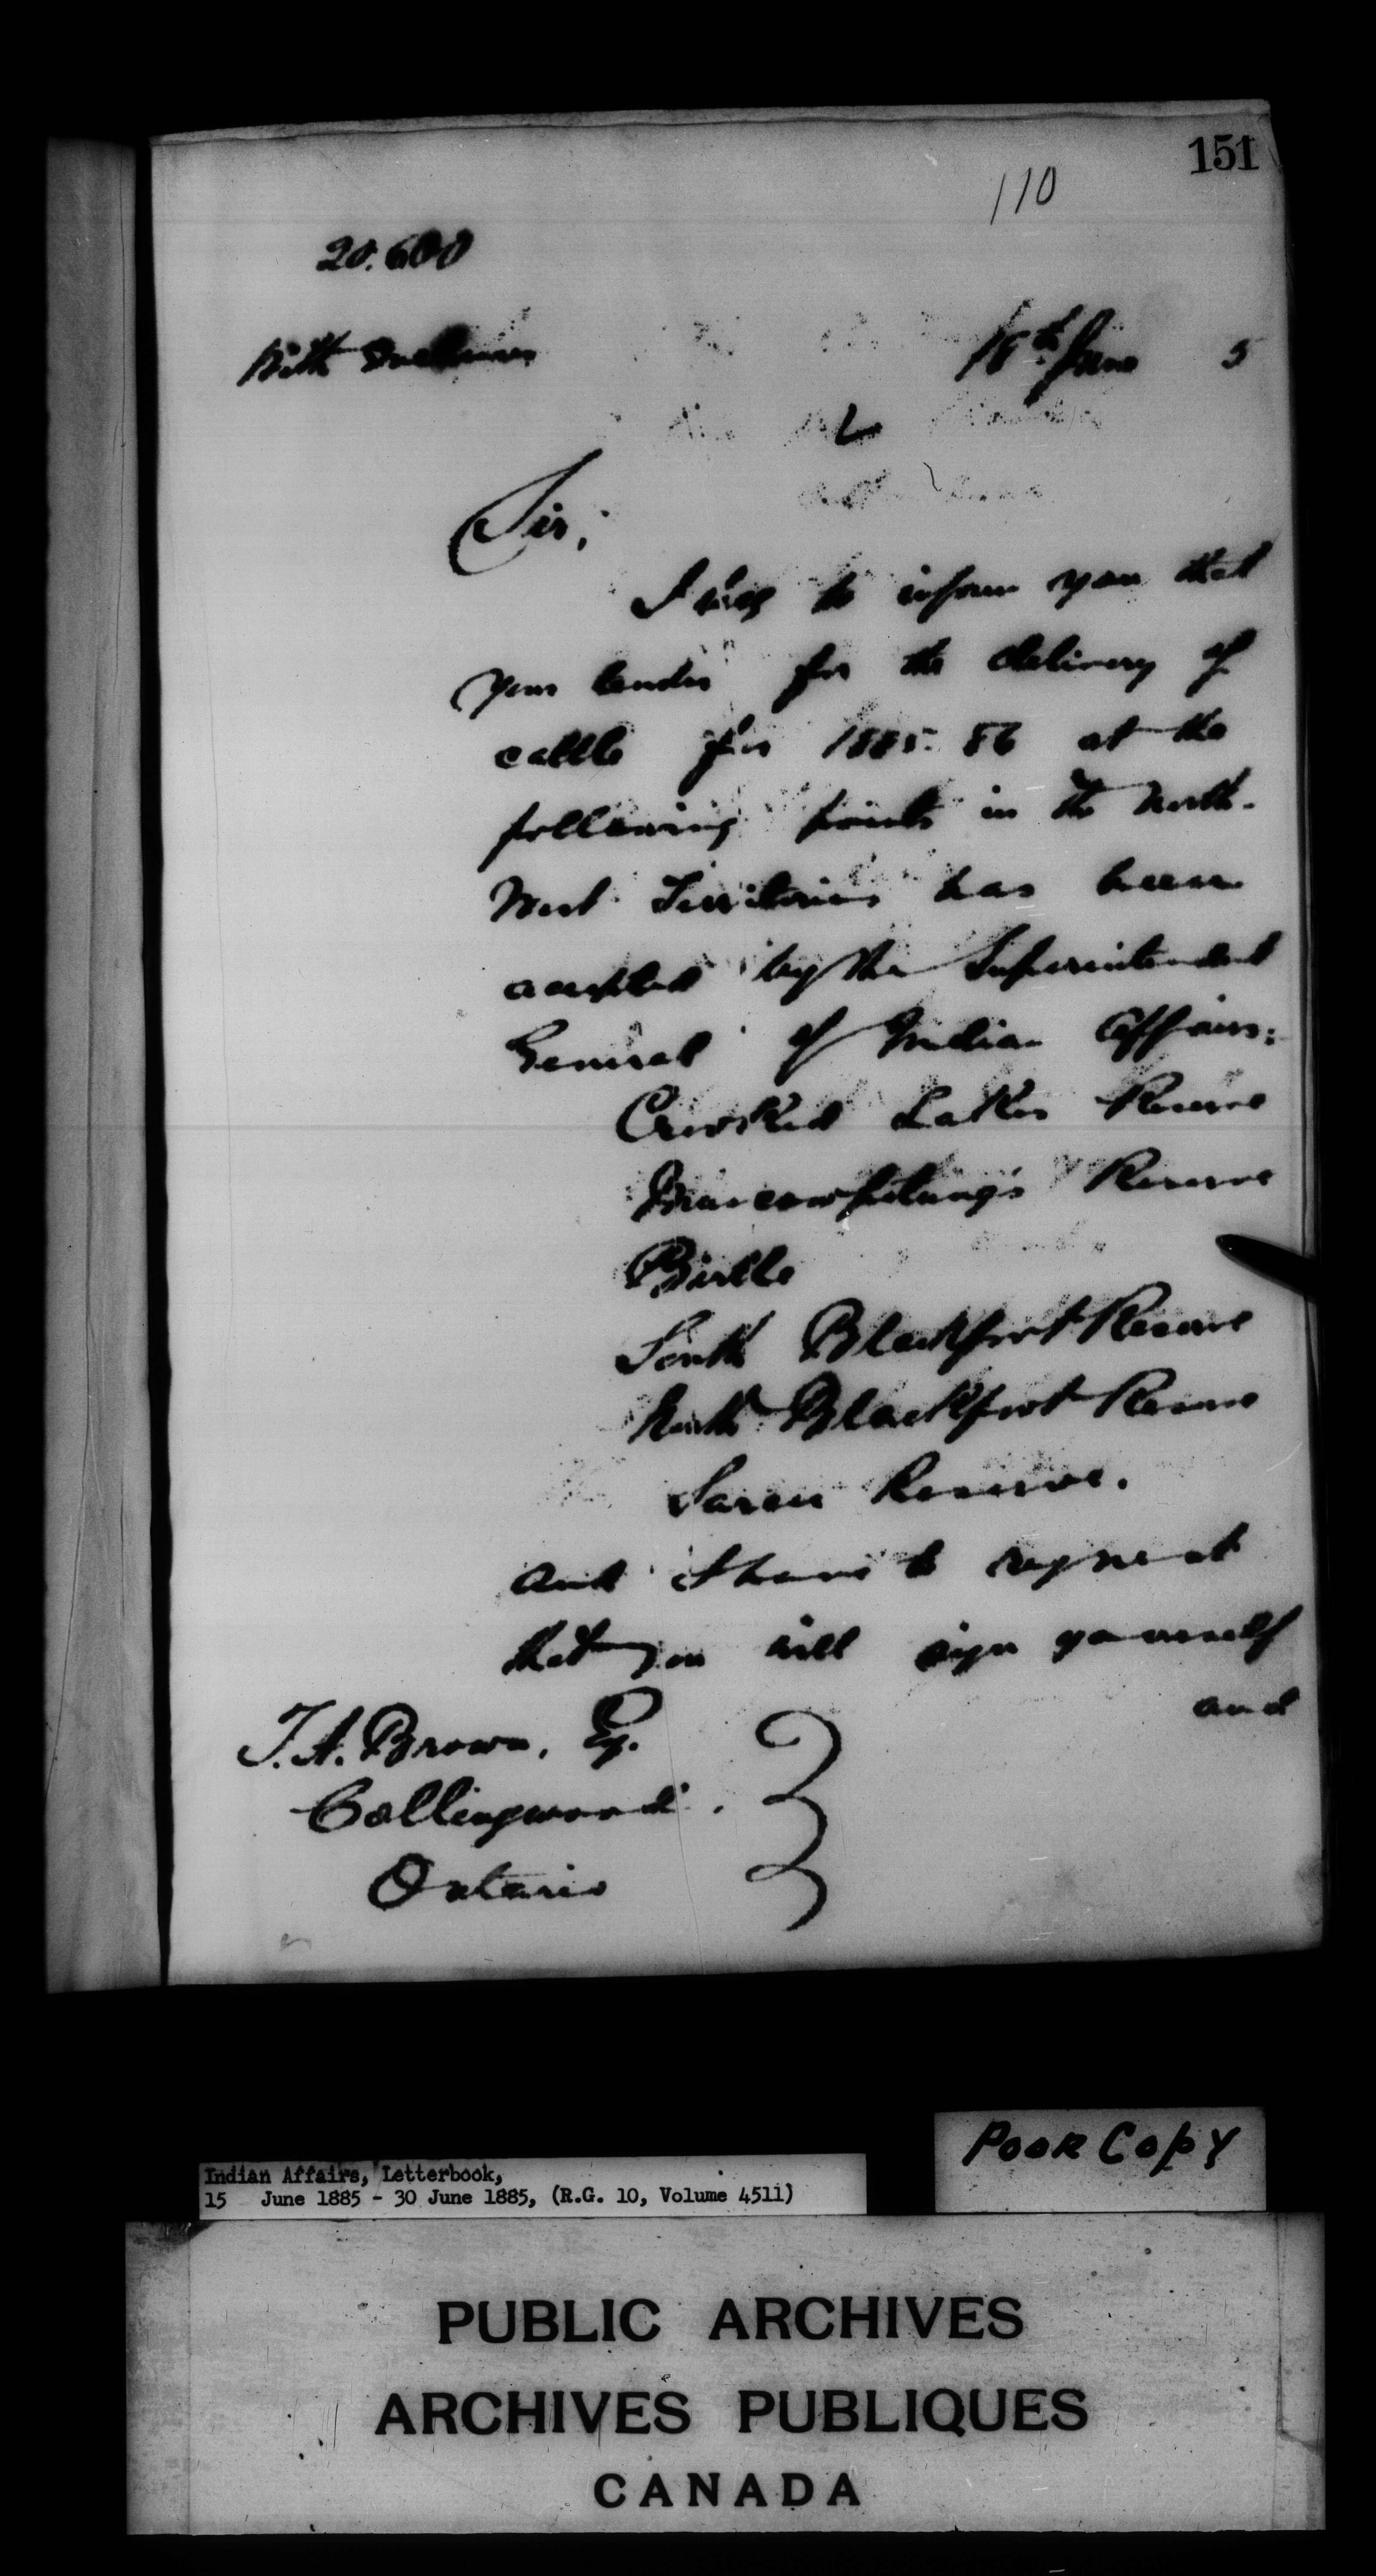 151
110
20.600
With Enclosures
18th June 5
Sir,
I beg to inform you that
your tender for the delivery of
cattle for 1885.86 at the
following points in the North-
West Territories has been
accepted by the Superintendent
General of Indian Affairs:
Crooked Lakes Reserve
Muscowpetung's Reserve
Birtle
South Blackfoot Reserve
North Blackfoot Reserve
Sarcee Reserve.
and I have to request
that you will sign yourself
and
T.A. Brown, Esq.
Collingwood.
Ontario
Poor Copy
Indian Affairs, Letterbook,
15 June 1885 - 30 June 1885, (R.G. 10, Volume 4511)
PUBLIC ARCHIVES
ARCHIVES PUBLIQUES
CANADA